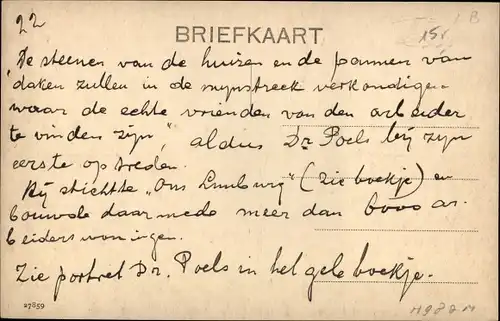 22
BRIEFKAART
15.
B
"De steenen van de huizen en de pannen van
daken zullen in de mijnstreek verkondigen
waar de echte vrienden van den arbeider
te vinden zijn", aldus Dr Poels bij zijn
eerste optreden.
Hij stichtte "Ons Limburg" (zie boekje) en
bouwde daarmede meer dan 6000 ar-
beiderswoningen.
Zie portret Dr. Poels in het gele boekje.
27859